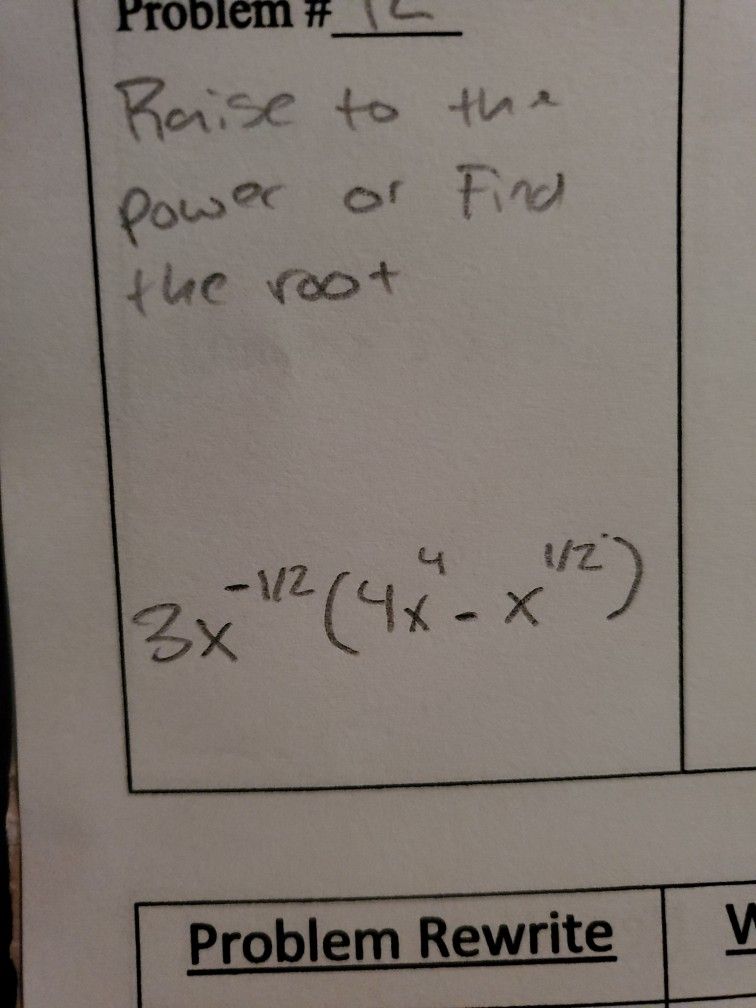 Problem # 12
Raise to the
power or Find
the root
3x^{-1/2}(4x^4 - x^{1/2})
Problem Rewrite